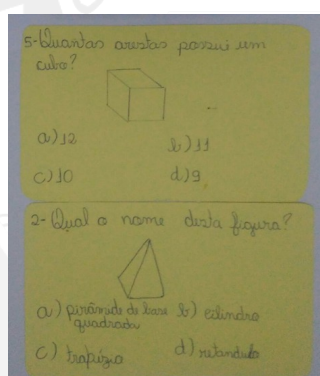 5-Quantas arestas possui um
cubo?
a)12
b)11
c)10
d)9
2-Qual o nome desta figura?
a) pirâmide de base
quadrada
b) cilindro
c) trapézio
d) retandulo